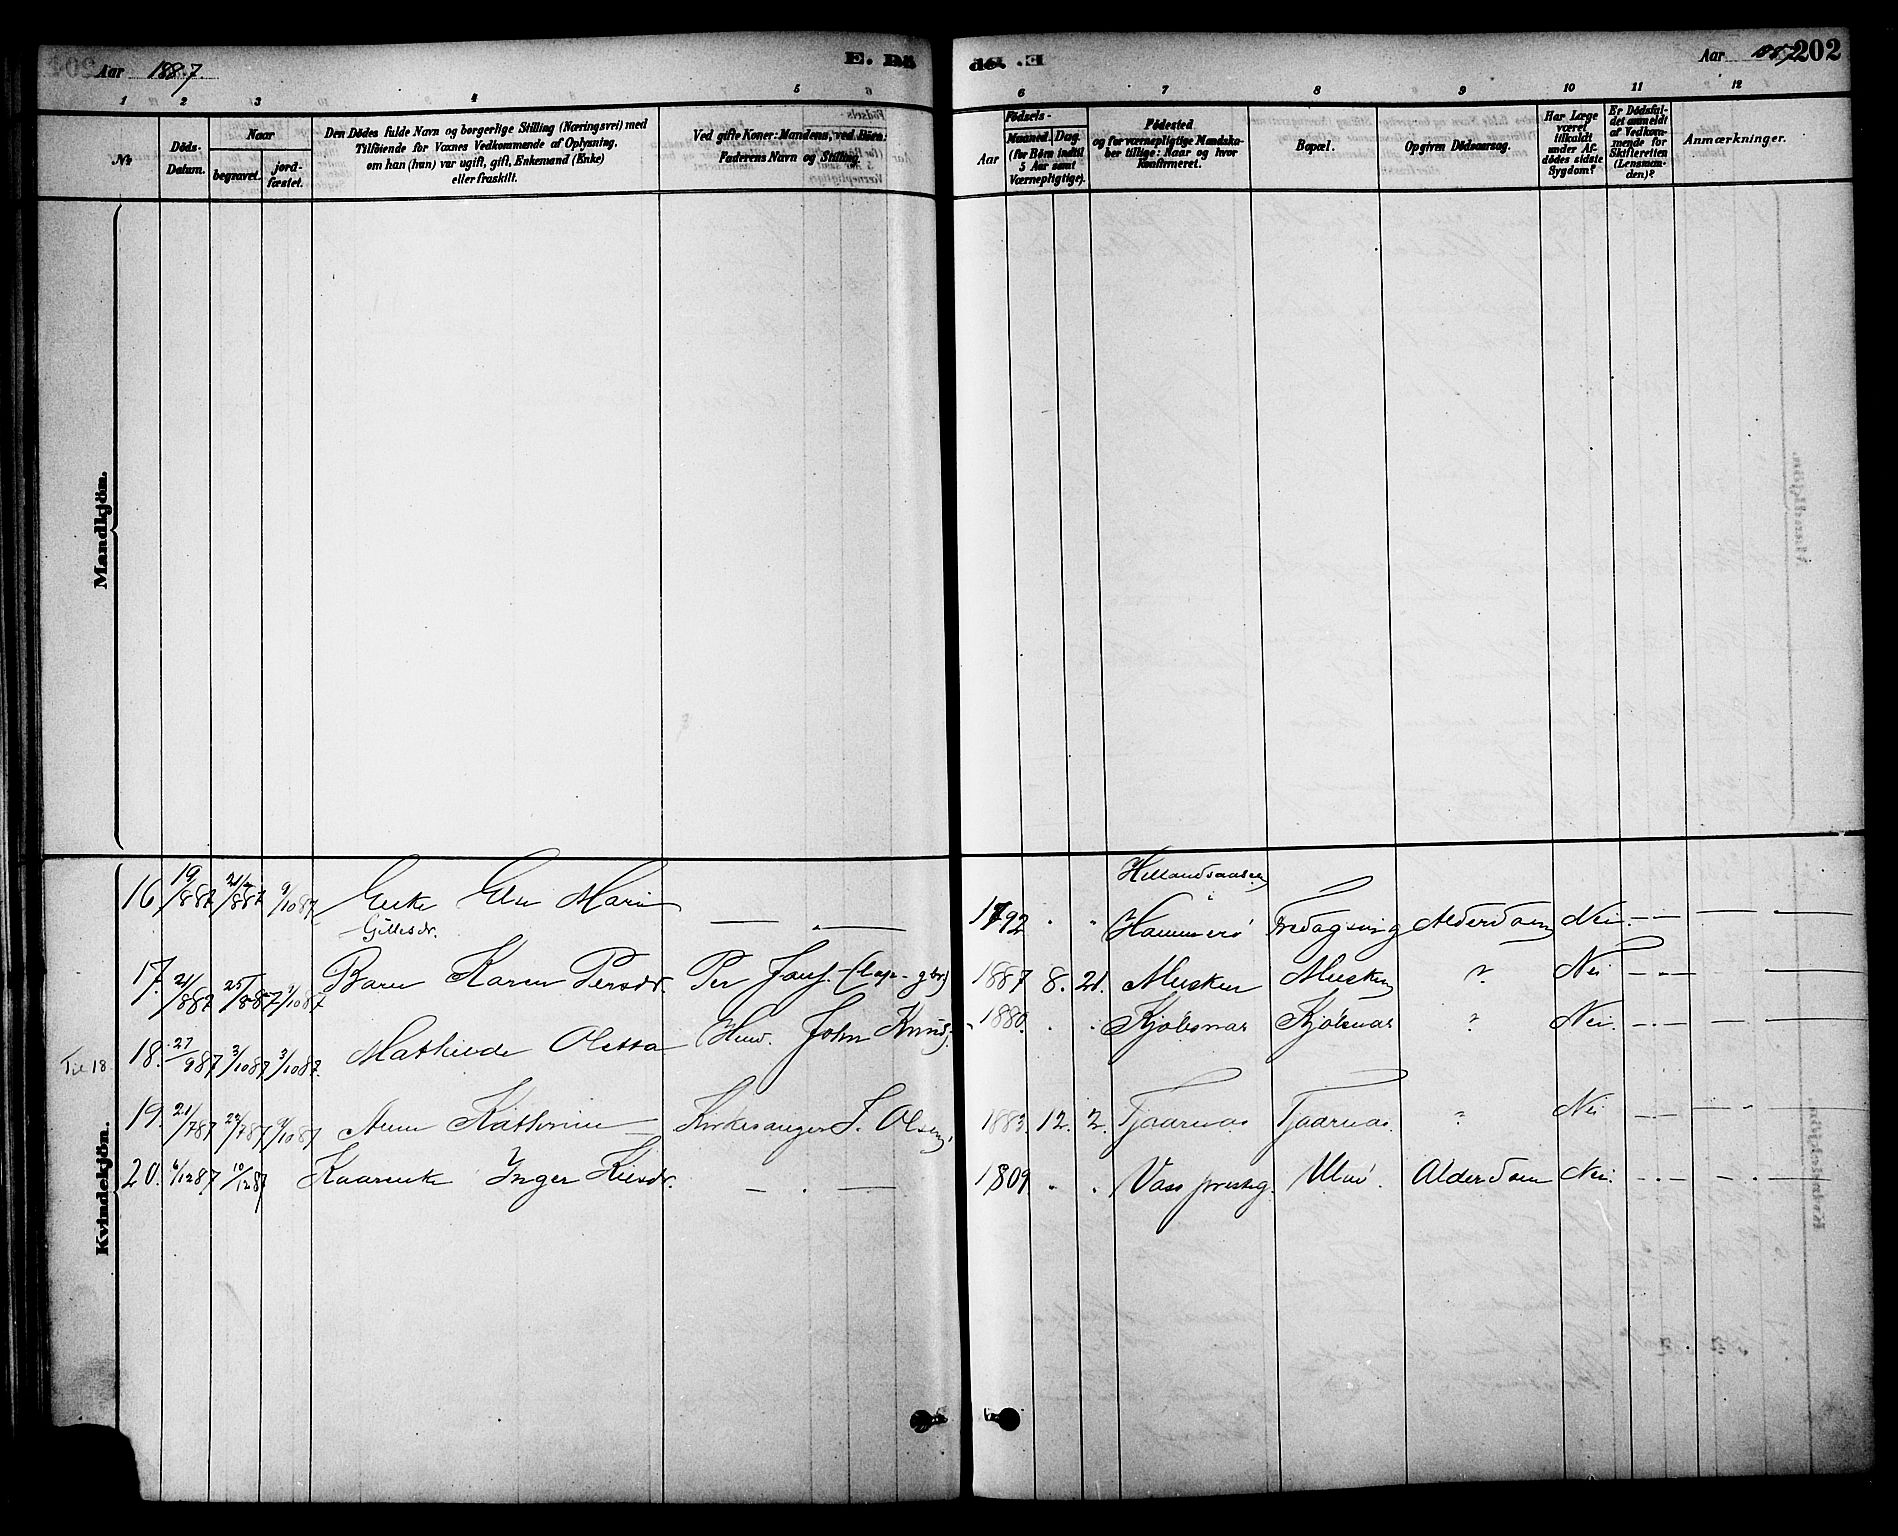 Aar 1887.
E. Dö
de. E.
Aar 1887
202
1 2 3 4 5 6
6 7 8 9 10 11 12
No
Döds-Datum.
Naar
begravet.
jordfæstet.
Den Dødes fulde Navn og borgerlige Stilling (Næringsvei) med
Tilföiende for Voxnes Vedkommende af Oplysning,
om han (hun) var ugift, gift, Enkemand (Enke)
eller fraskilt.
Ved gifte Koner: Mandens, ved Börn:
Faderens Navn og Stilling.
Födsels-
Aar
Maaned.
Dag.
(for Börn indtil
5 Aar samt
Værnepligtige).
Födested
og for værnepligtige Mandska-
ber tillige: Naar og hvor
konfirmeret.
Bopæl.
Opgiven Dödsaarsag.
Har Læge
været
tilkaldt
under Af-
dødes sidste
Sygdom?
Er Dödsfal-
det anmeldt
af Vedkom-
mende for
Skifteretten
(Lensman-
den)?
Anmærkninger.
Mandkjön.
Kvindekjön.
16 19/8 87 21/8 87 9/10 87 Enke Else Marie Gillesdr. — . — 1792 . . Hammerö Alderdom Nei . — . — — . —
17. 21/8 87 25/8 87 9/10 87 Barn Karen Persdr. Per 1887 8. 21. Musken Musken ? Nei — . —
Til 18.
18. 27/9 87 3/10 87 3/10 87. Mathilde Oletta John 1880. . . Kjölsnæs Kjölsnæs ? Nei. — . —
19. 21/7 87 9/10 87 Anne Kathrine Kirkesanger S. Olsen, 1883. 12. 2. Tjaarnæs Tjaarnæs. ? Nei — . —
20. 6/12 87 10/12 87 Inger — . — 1809 . . Alderdom Nei. — . — — . —